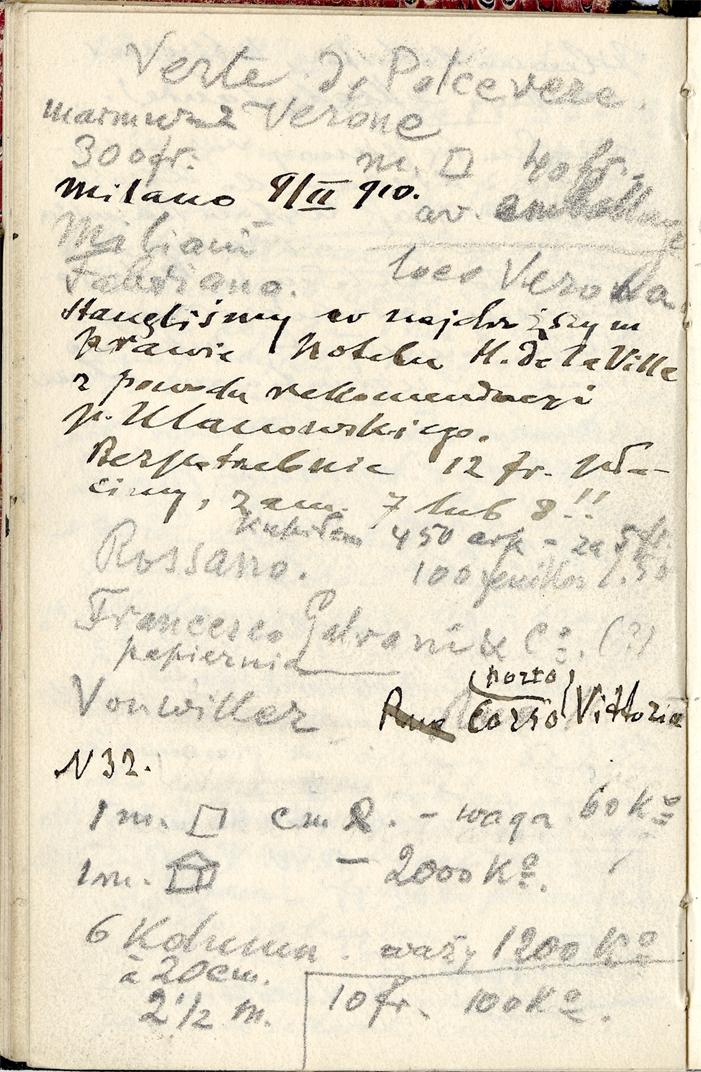 Verte di Polcevere.
marmur z Verone
300 fr. m. □ 40 fr.
Milano 9/II 910.
av. emballage
Miliani
Fabriano. loco Verona
Stanęliśmy w najdroższym
prawie hotelu H. de la Ville
z powodu rekomendacyi
p. Ulanowskiego.
Bezpotrzebnie 12 fr. pła-
cimy, zam. 7 lub 8!!
Kupiłam 450 ark - za 5 fr.
Rossano. 100 feuilles 1.50
Francesco Galvani & Co. (?)
papiernia
(porto)
Vonwiller Rue Corso Vittoria
N 32.
1 m. □ cm 2. - waga 60 Ko
1 m. - 2000 Ko.
6 Kolumn waży 1200 Ko
à 20 cm.
2 1/2 m. 10 fr. 100 Ko.